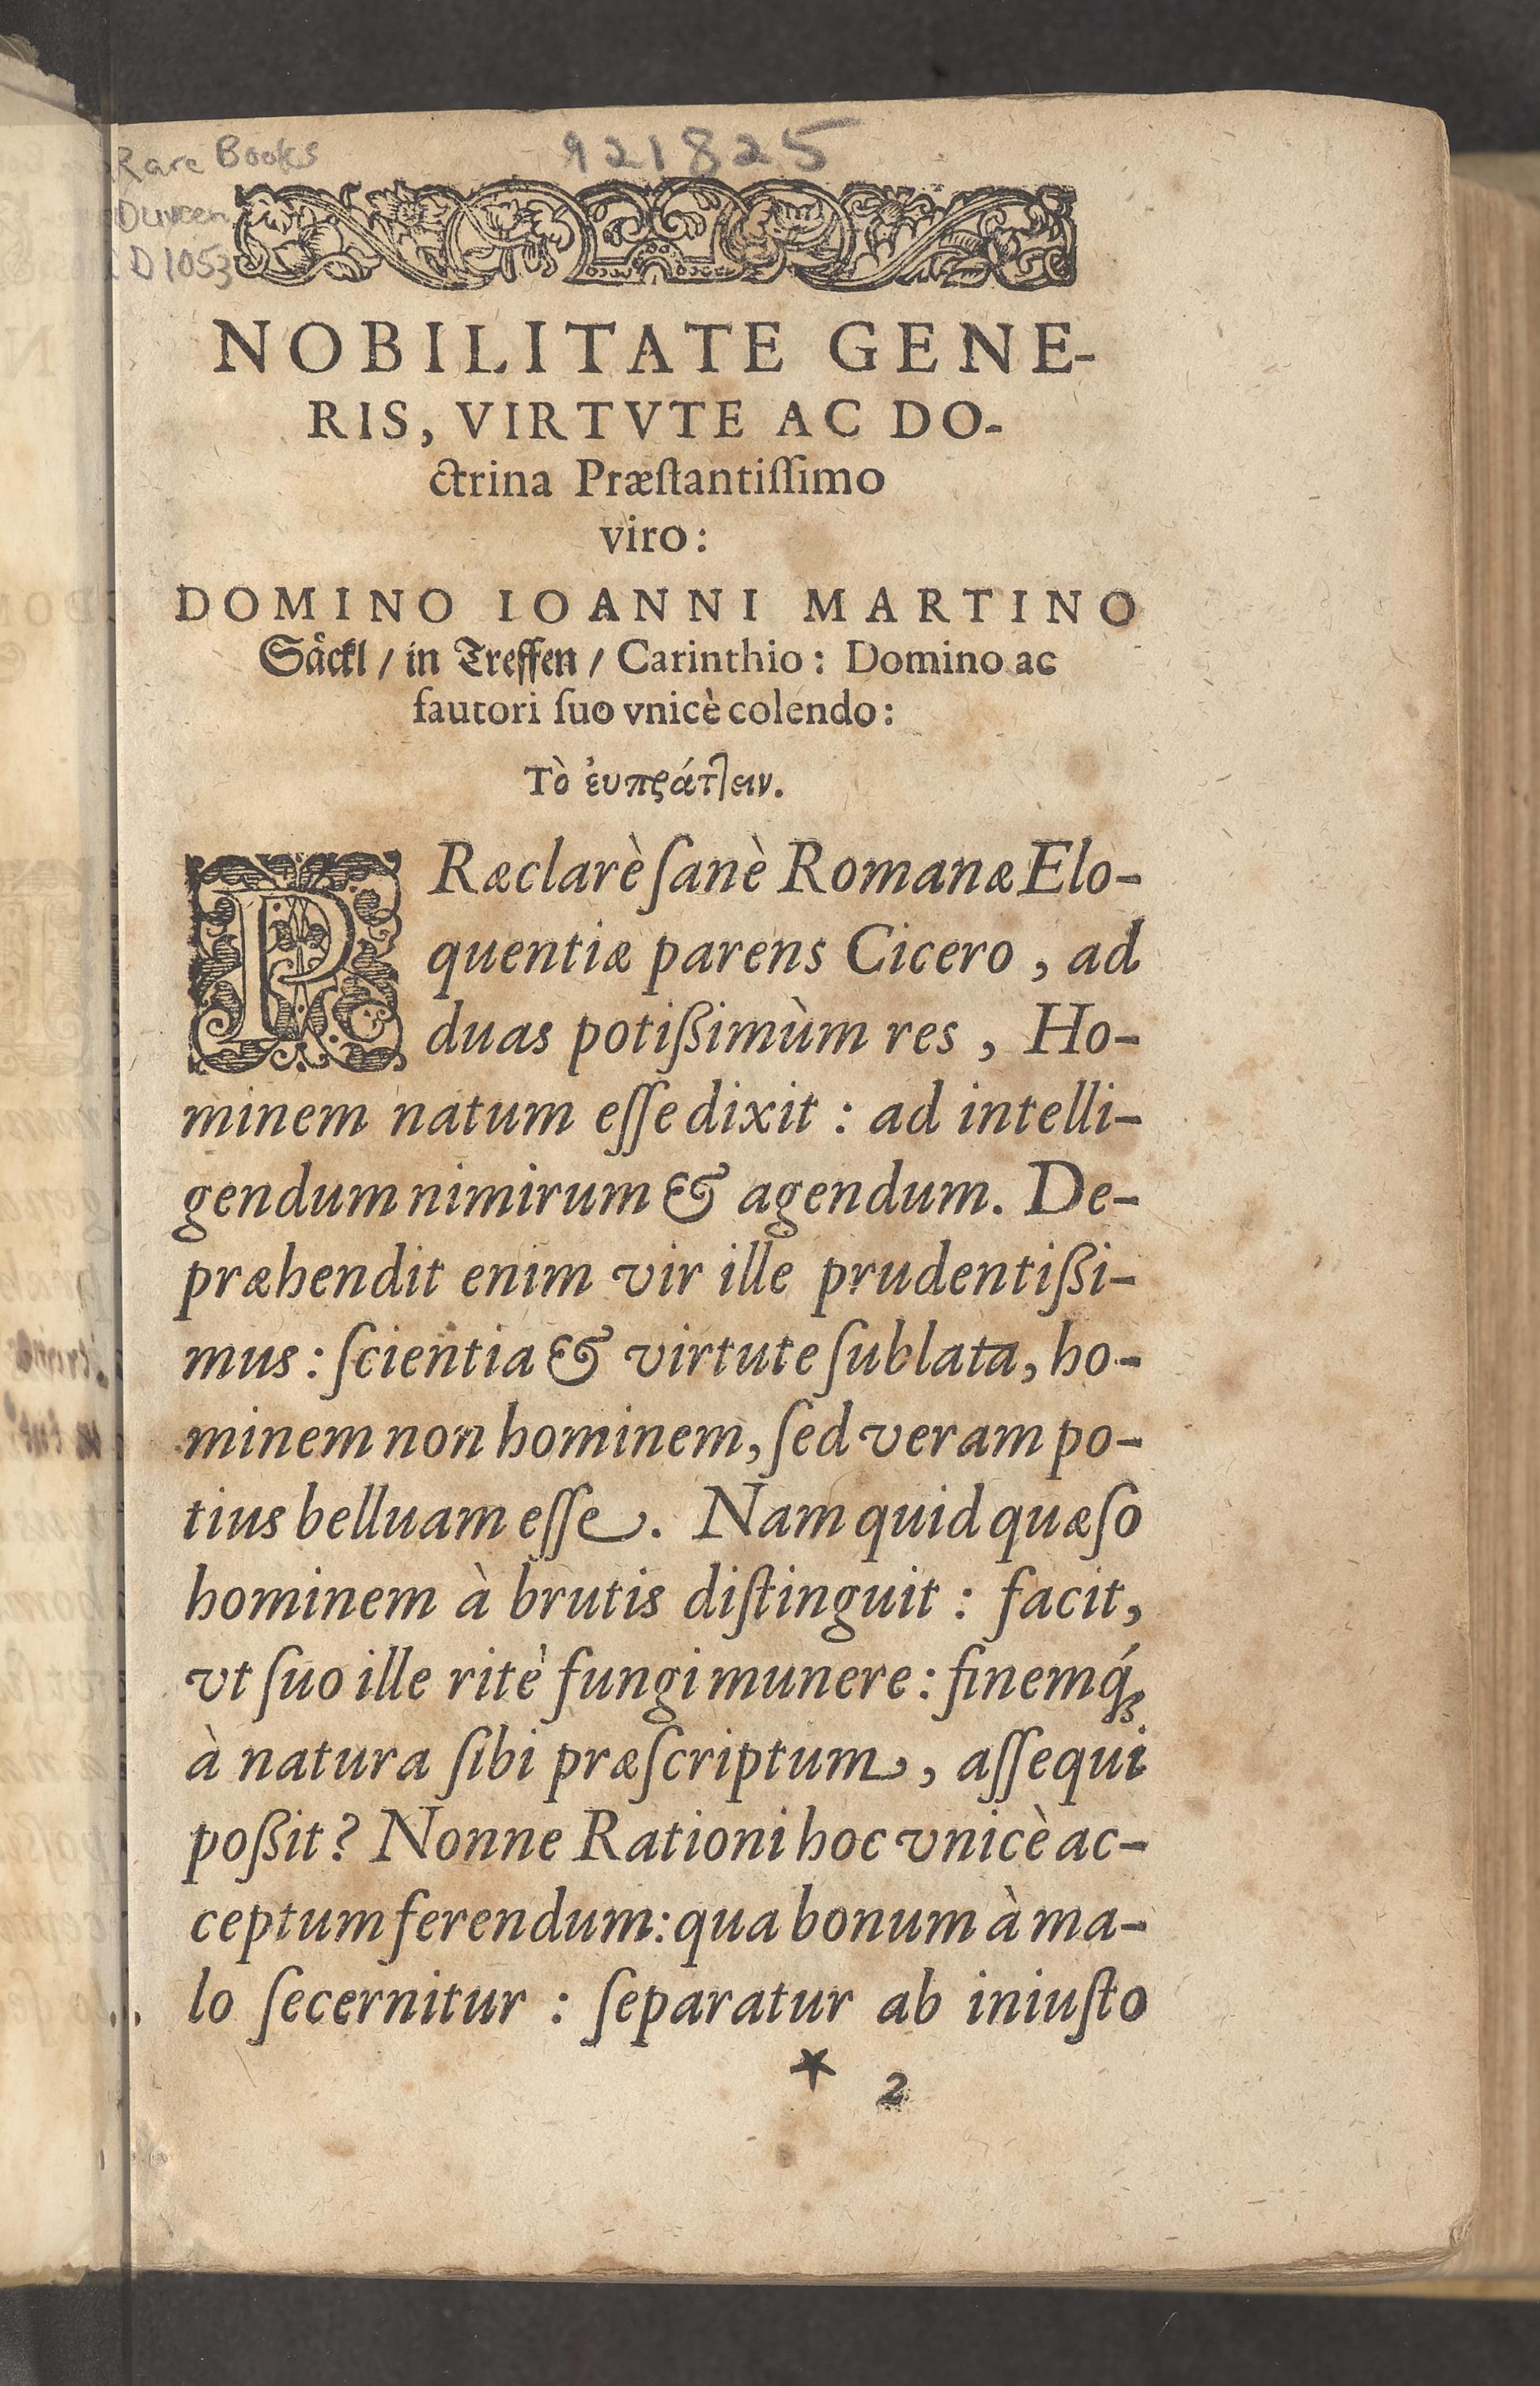 Rare Books
921825
Duveen
D 1053
NOBILITATE GENE-
RIS, VIRTVTE AC DO-
ctrina Præſtantiſſimo
viro:
DOMINO IOANNI MARTINO
Saͤckl / in Treffen / Carinthio: Domino ac
fautori ſuo vnicè colendo:
Τὸ ἐυπράτλειν.
PRæclarè ſanè Romanæ Elo-
quentiæ parens Cicero, ad
duas potißimùm res, Ho-
minem natum eſſe dixit: ad intelli-
gendum nimirum & agendum. De-
præhendit enim vir ille prudentißi-
mus: ſcientia & virtute ſublata, ho-
minem non hominem, ſed veram po-
tius belluam eſſe. Nam quid quæſo
hominem à brutis diſtinguit: facit,
vt ſuo ille ritè fungi munere: finemq́;
à natura ſibi præſcriptum, aſſequi
poßit? Nonne Rationi hoc vnicè ac-
ceptum ferendum: qua bonum à ma-
lo ſecernitur: ſeparatur ab iniuſto
* 2